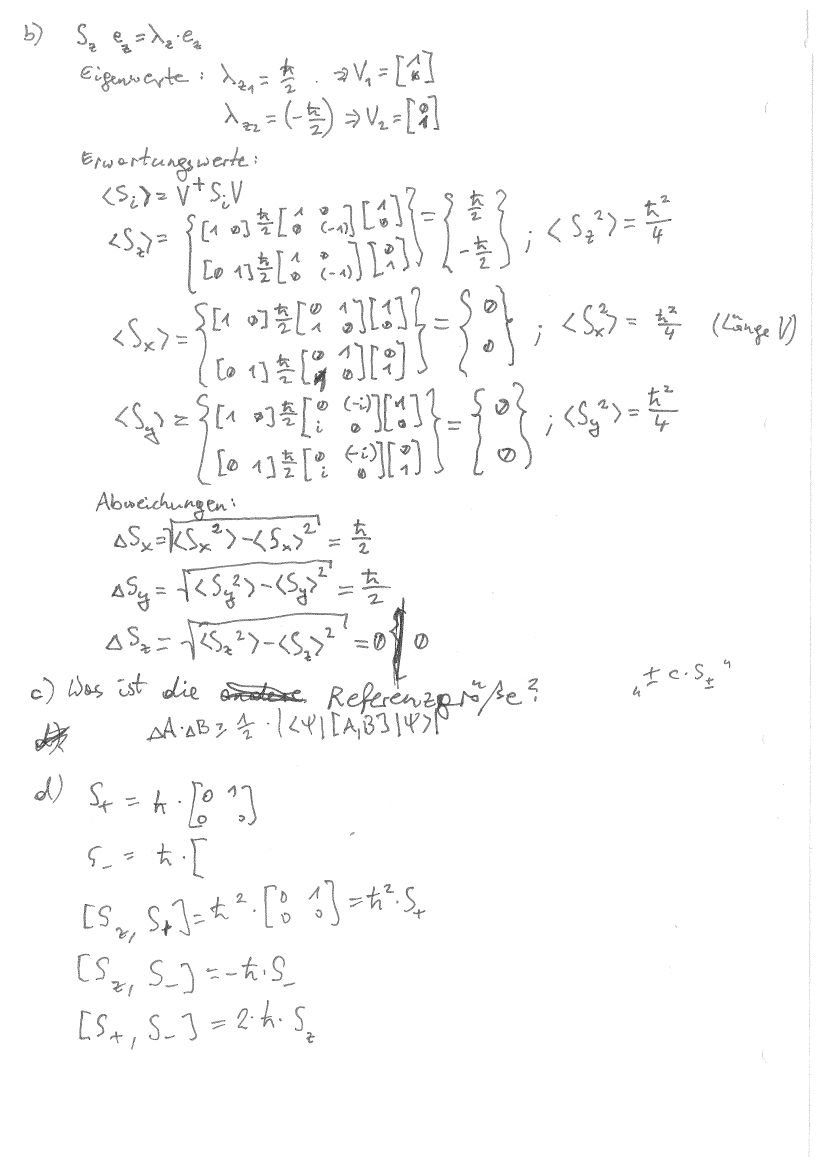 b) S_z e_z = λ_z · e_z
Eigenwerte : λ_z1 = ħ/2 . ⇒ V_1 = [1 0]
λ_z2 = (-ħ/2) ⇒ V_2 = [0 1]
Erwartungswerte:
<S_i> = V^+ S_i V
<S_z> = { [1 0] ħ/2 [1 0 0 (-1)] [1 0] [0 1] ħ/2 [1 0 0 (-1)] [0 1] } = { ħ/2 -ħ/2 } ; <S_z^2> = ħ^2/4
<S_x> = { [1 0] ħ/2 [0 1 1 0] [1 0] [0 1] ħ/2 [0 1 1 0] [0 1] } = { 0 0 } ; <S_x^2> = ħ^2/4 (Länge V)
<S_y> = { [1 0] ħ/2 [0 (-i) i 0] [1 0] [0 1] ħ/2 [0 (-i) i 0] [0 1] } = { 0 0 } ; <S_y^2> = ħ^2/4
Abweichungen:
ΔS_x = √(<S_x^2> - <S_x>^2) = ħ/2
ΔS_y = √(<S_y^2> - <S_y>^2) = ħ/2
ΔS_z = √(<S_z^2> - <S_z>^2) = 0 0
c) Was ist die Referenzgröße? "± c · S_±"
ΔA · ΔB ≥ 1/2 · |<Ψ|[A,B]|Ψ>|
d) S_+ = ħ · [0 1 0 0]
S_- = ħ · [
[S_z, S_+] = ħ^2 · [0 1 0 0] = ħ^2 · S_+
[S_z, S_-] = -ħ · S_-
[S_+, S_-] = 2 · ħ · S_z